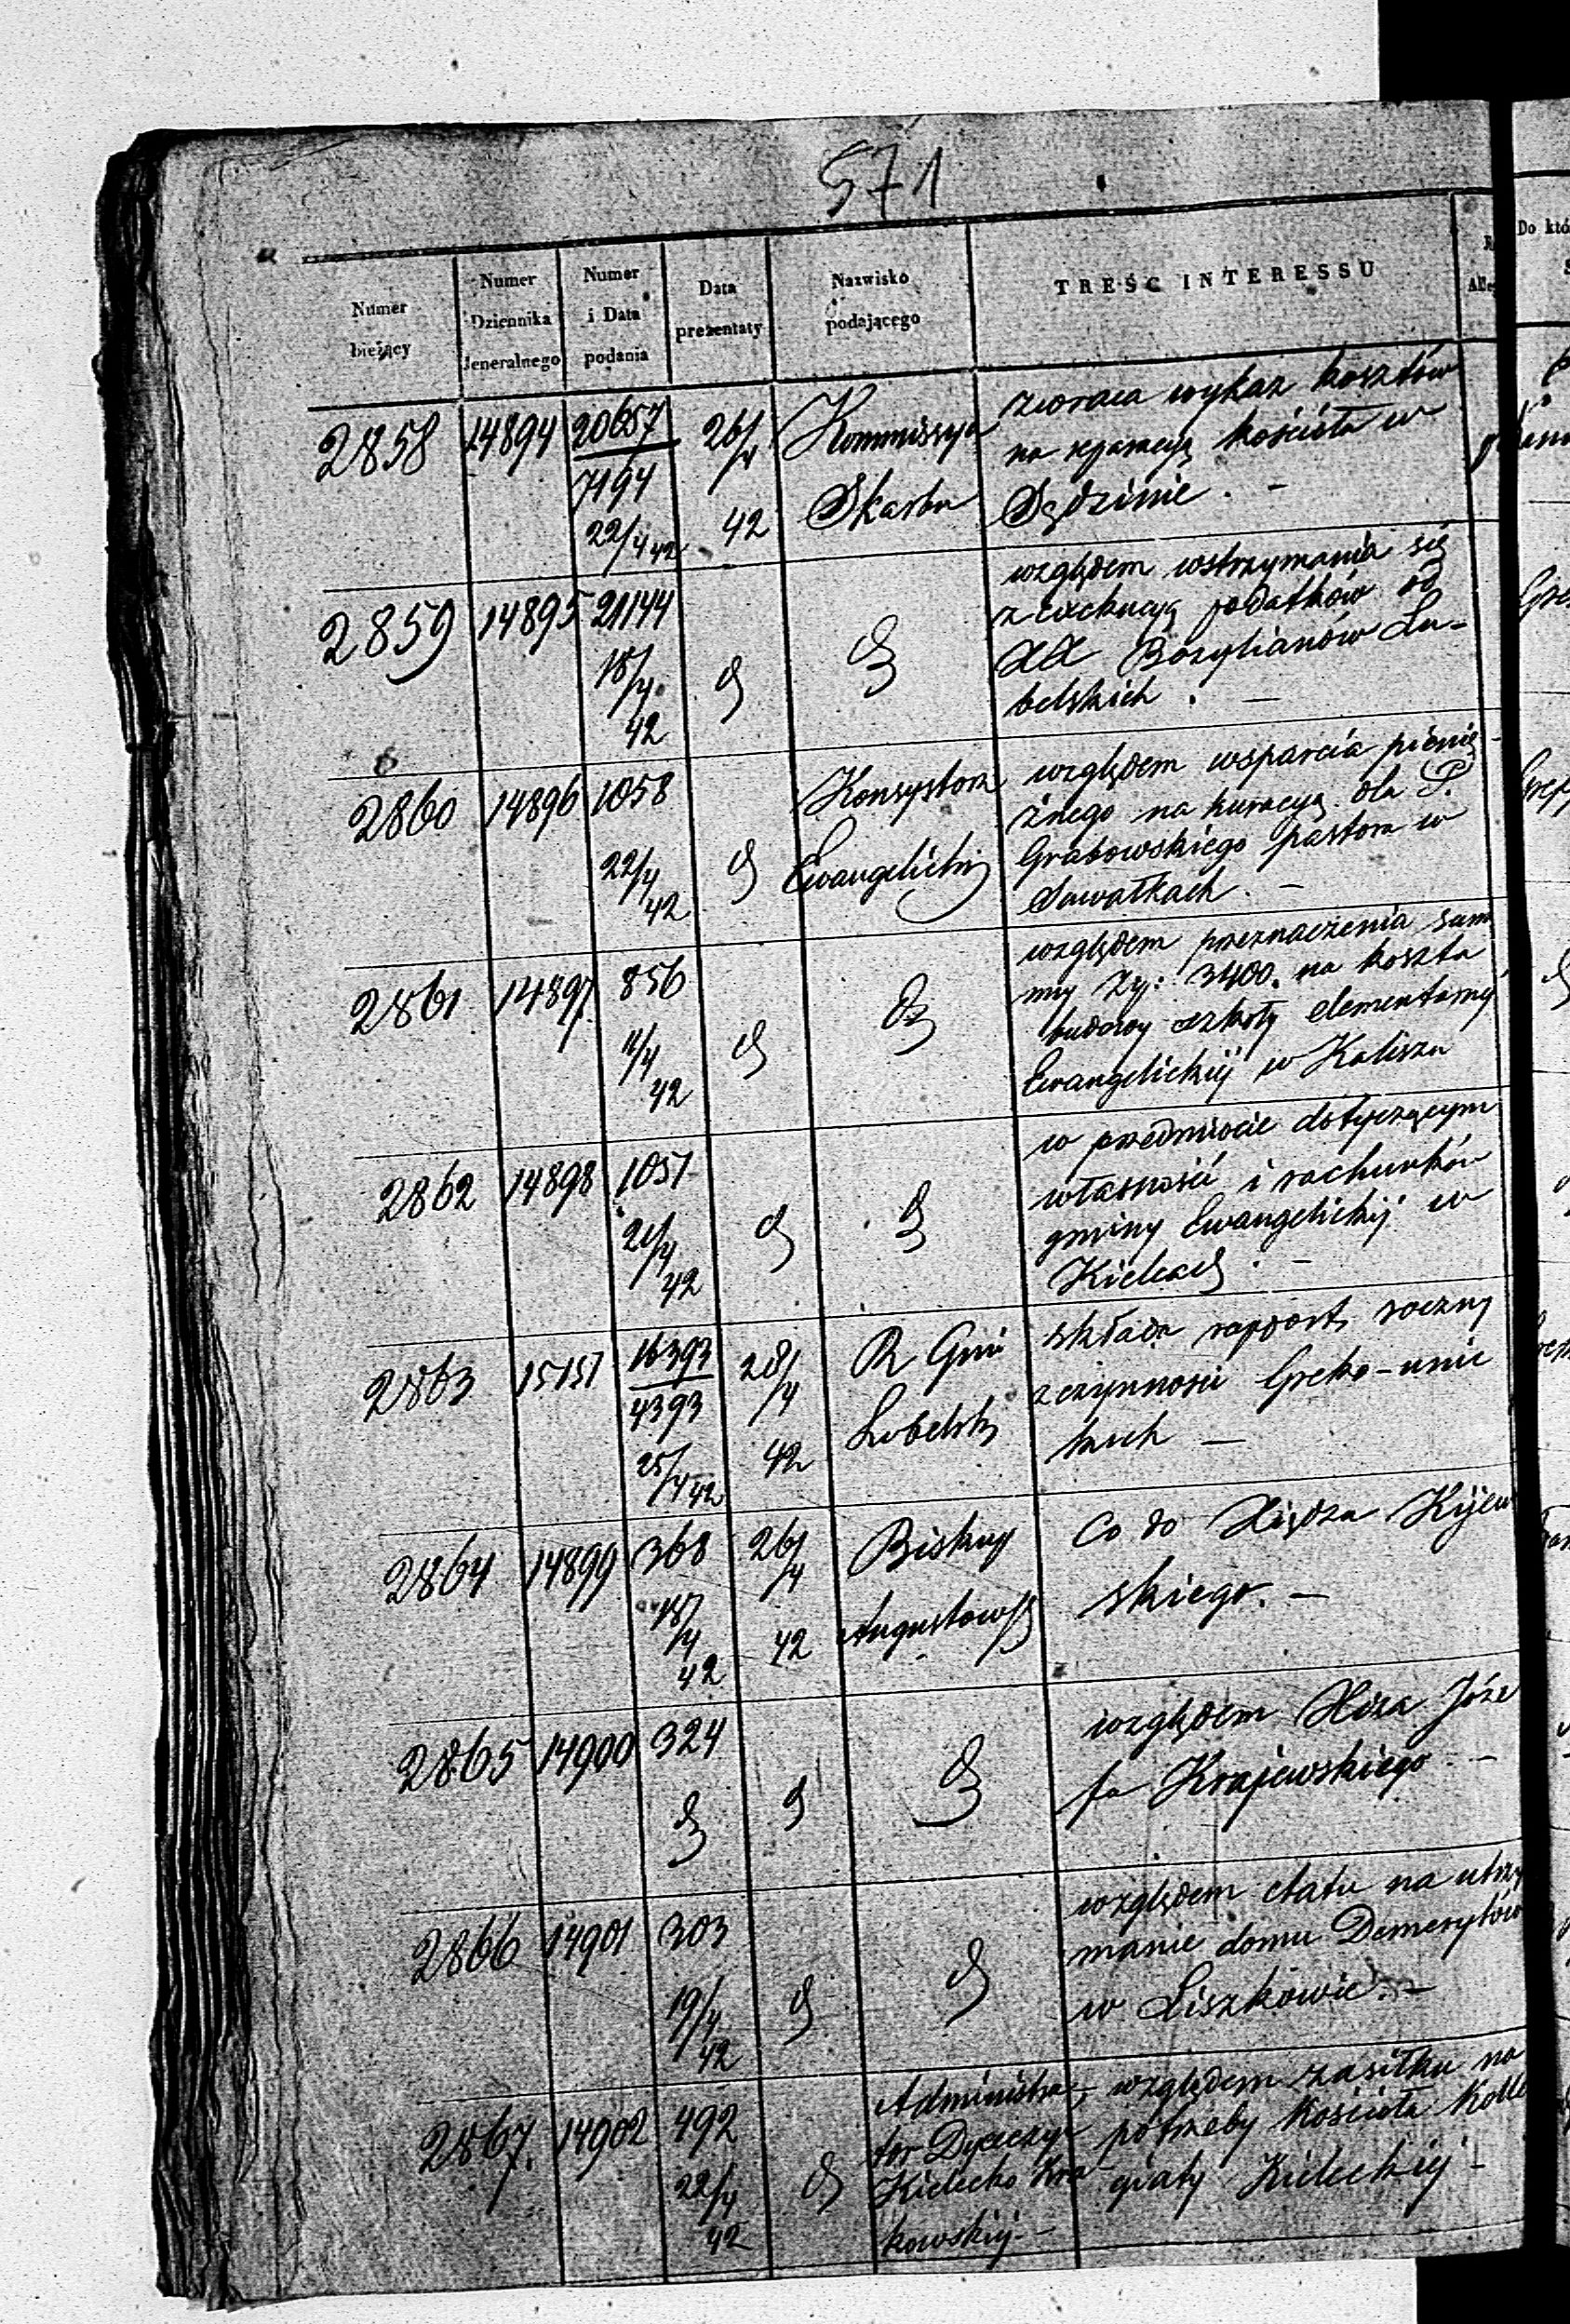 571
Numer bieżący
Numer Dziennika Jeneralnego
Numer i Data podania
Data prezentaty
Nazwisko podającego
TREŚĆ INTERESSU
Do któ
2858 14894 20657 26/4 Kommissya zwraca wykaz kosztów
7194 na reparacyą kościoła w
22/4 42 42 Skarbu Sędzinie. -
2859 14895 21144 względem wstrzymania się
z exekucyą podatków od
18/4 XX Bazylianów Lu-
42 belskich. -
2860 14896 1058 Konsystorz względem wsparcia pienię-
żnego na kuracyą dla P.
22/4 Ewangelicki Grabowskiego pastora w
42 Suwałkach. -
2861 14897 856 względem przeznaczenia sum
my Zł: 3400. na koszta
11/4 budowy szkoły elementarnej
42 Ewangelickiej w Kaliszu
2862 14898 1051 w przedmiocie dotyczącym
własności i rachunków
21/4 gminy Ewangelickiej w
42 Kielcach. -
2863 15151 16393 28/4 R Gub składa rapport roczny
4393 z czynności Greko-unic
25/4 42 42 Lubelski kich -
2864 14899 368 26/4 Biskup Co do Xiędza Kijew
18/4 42 Augustowski skiego. -
42
2865 14900 324 względem Xiza Józe
fa Krajewskiego -
2866 14901 303 względem etatu na utrzy
manie domu Demerytów
19/4 w Liszkowie. -
42
2867. 14902 492 Administra- względem zasiłku na
tor Dyecezyi potrzeby kościoła Kolle
22/4 Kielecko Kra- giaty Kieleckiej -
42 kowskiej -